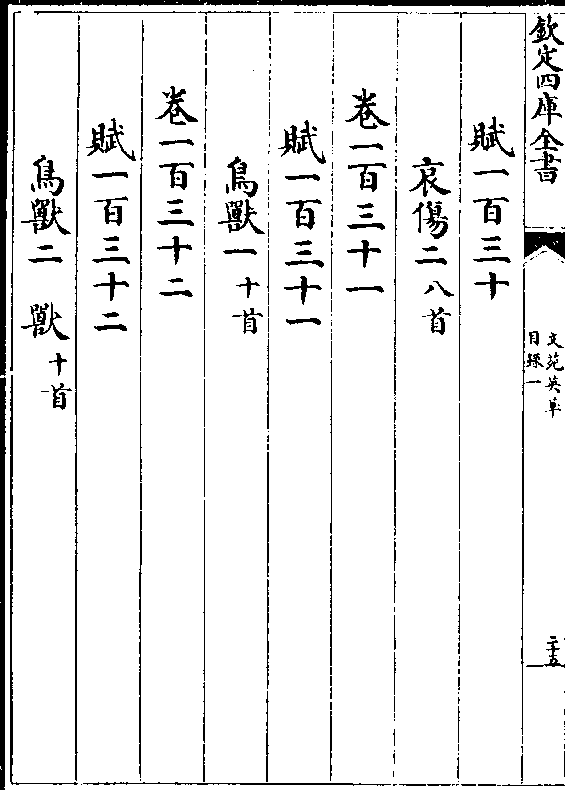 欽定四庫全書
文苑英華
目錄一
二十五
賦一百三十
哀傷二八首
卷一百三十一
賦一百三十一
鳥獸一十首
卷一百三十二
賦一百三十二
鳥獸二 獸十一首